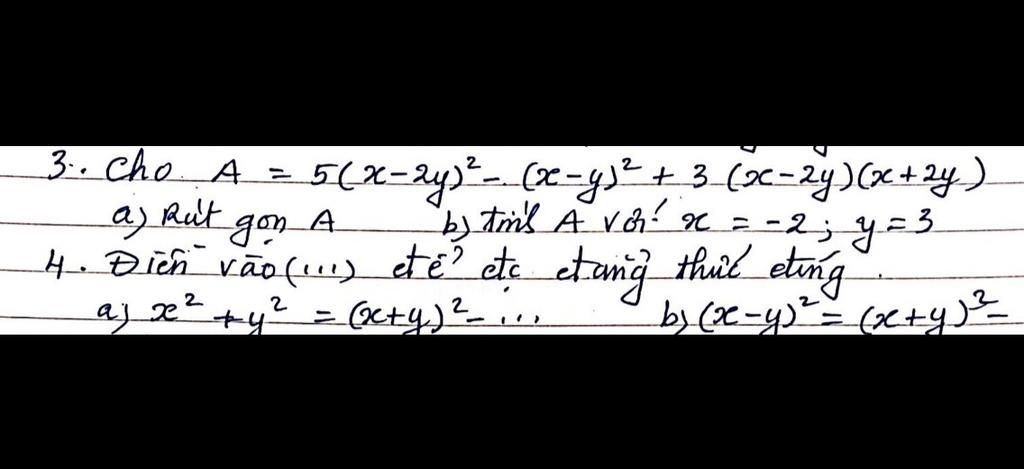 3. Cho A = 5(x-2y)² - (x-y)² + 3(x-2y)(x+2y)
a) Rút gọn A b) tính A với x = -2; y = 3
4. Điền vào (...) để đc đẳng thức đúng.
a) x² + y² = (x+y)² - ... b) (x-y)² = (x+y)² -